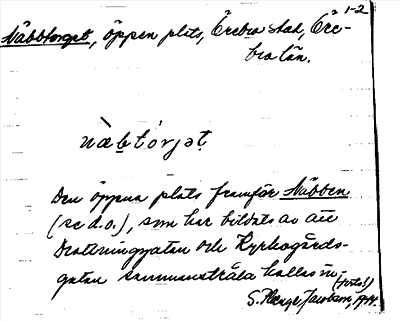 1-2
Näbbtorget, öppen plats, Örebro stad, Öre-
bro län.
nàbtórjət
Den öppna plats framför Näbben
(se d.o.), som har bildats av att
Drottninggatan och Kyrkogårds-
gatan sammanstråla kallas nu
(forts!)
S. Helge Jacobsson, 1944.